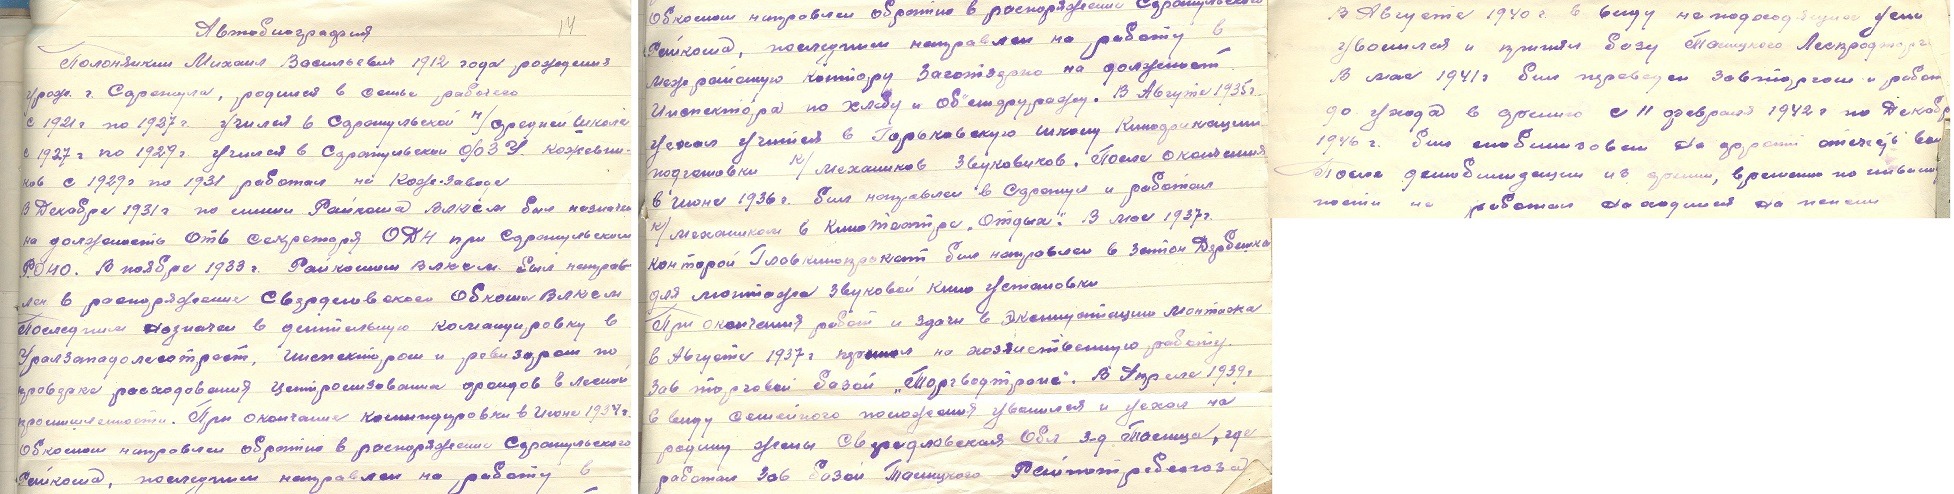 Автобиография 14
Полонянкин Михаил Васильевич 1912 года рождения
урож. г. Сарапула, родился в семье рабочего
с 1921 г по 1927 г. учился в Сарапульской н/средней школе
с 1927 г по 1929 г. учился в Сарапульской ФЗУ. кожевни-
ков с 1929 г по 1931 работал на Кож-Заводе
В Декабре 1931 г по линии Райкома ВЛКСМ был назначен
на должность Отв секретаря ОДН при Сарапульском
РОНО. В ноябре 1933 г. Райкомом ВЛКСМ. был направ
лен в распоряжение Свердловского Обкома ВЛКСМ
Последним назначен в длительную командировку в
Уралзападолесотрест, инспектором и ревизором по
проверке расходования централизованна фондов в лесной
промышленности. При окончание командировки в Июне 1934 г.
Обкомом направлен обратно в распоряжение Сарапульского
Райкома, последним направлен на работу в
Обкомом направлен обратно в распоряжение Сарапульского
Райкома, последним направлен на работу в
межрайонную контору Заготзерно на должност
Инспектора по хлебу и Об"ему фуражу. В Августе 1935 г.
уехал учится в Горьковскую школу Кинофикации
подготовки к/механиков Звуковиков. После окончания
в июне 1936 г. был направлен в Сарапул и работал
к/механиком в Кинотеатре „Отдых". В мае 1937 г.
конторой Главкинопрокат был направлен в затон Дербешка
для монтажа звуковой кино установки
При окончания работ и здачи в эксплуатацию монтажа
в Августе 1937 г принял на хозяйственную работу.
Зав торговой базой „Торгводтранс". В Апреле 1939 г.
в виду семейного положения уволился и уехал на
родину жены Свердловская Обл з-д Талица, где
работал Зав базой Талицкого Райпотребсоюза
В Августе 1940 г. в виду не подходящие усло
уволился и принял базу Талицкого Леспродторга
В мае 1941 г был переведен Завторгом и работ
до ухода в армию с 11 февраля 1942 г по Декабр
1946 г. был мобилизован на фронт отечеств вой
После демобилизации из армии, временно по инвалид
ности не работал находился на пенсии